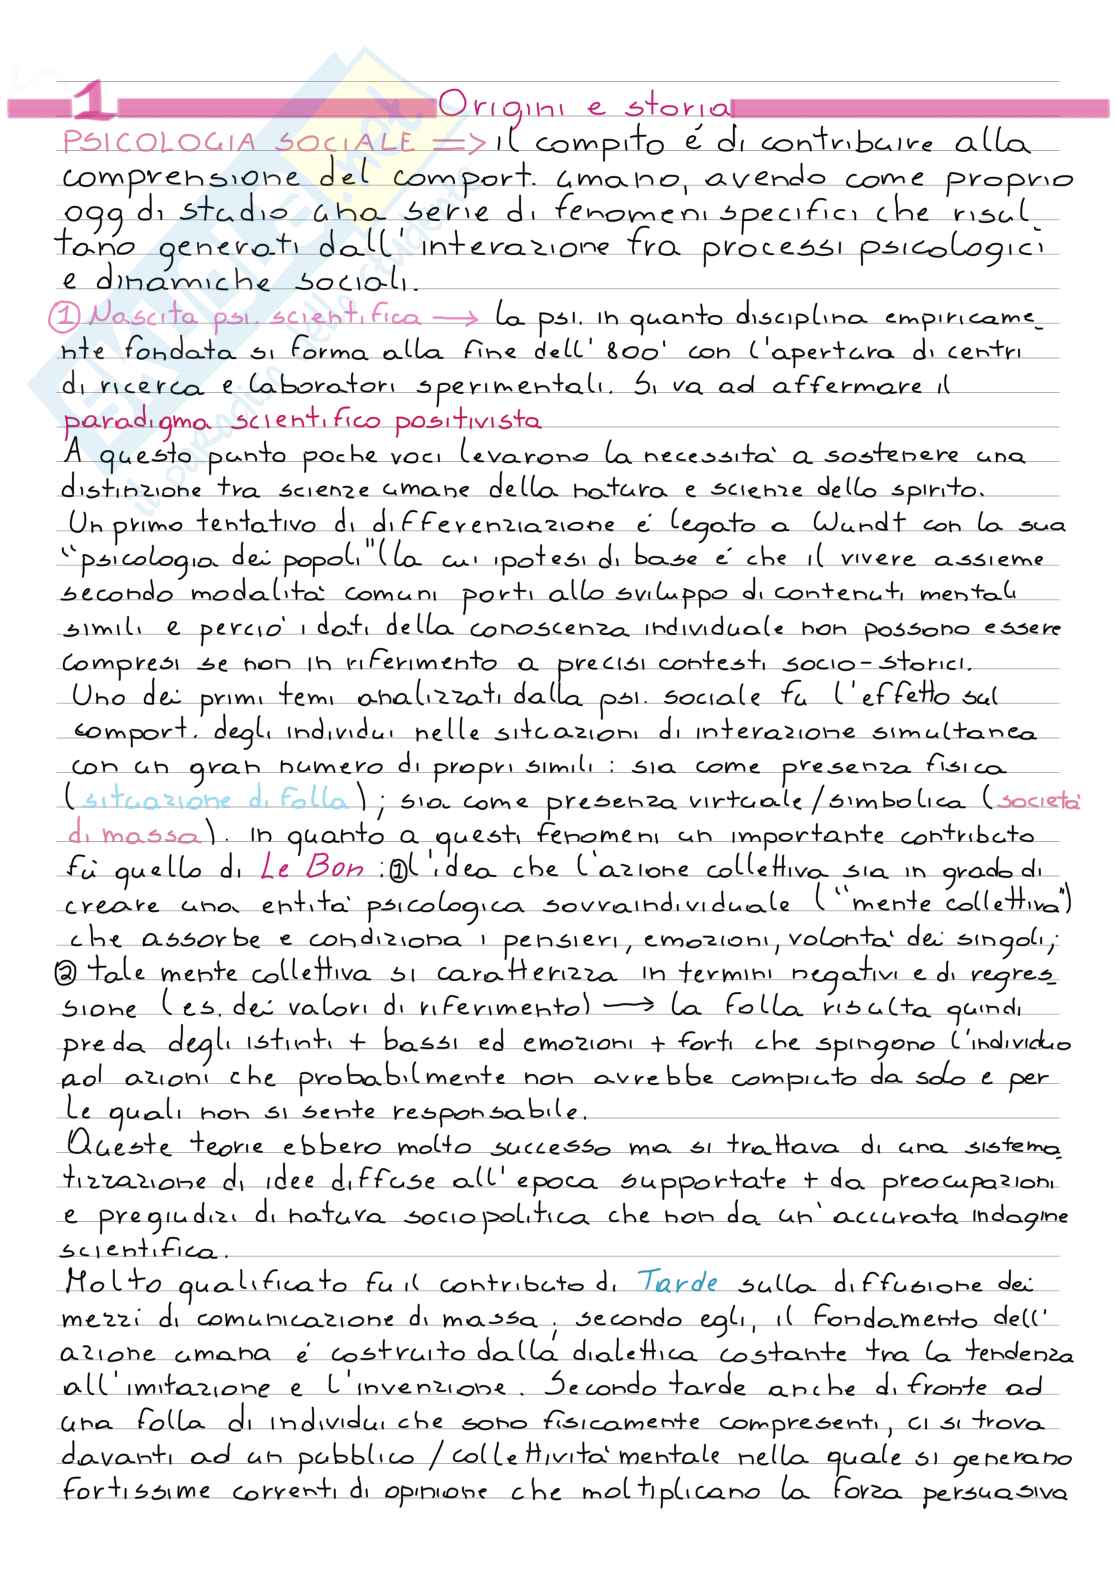 1 Origini e storia
PSICOLOGIA SOCIALE => il compito é di contribuire alla
comprensione del comport. umano, avendo come proprio
ogg di studio una serie di fenomeni specifici che risul
tano generati dall'interazione fra processi psicologici
e dinamiche sociali.
① Nascita psi. scientifica → la psi. in quanto disciplina empiricame_
nte fondata si forma alla fine dell'800' con l'apertura di centri
di ricerca e laboratori sperimentali. Si va ad affermare il
paradigma scientifico positivista
A questo punto poche voci levarono la necessità a sostenere una
distinzione tra scienze umane della natura e scienze dello spirito.
Un primo tentativo di differenziazione é legato a Wundt con la sua
"psicologia dei popoli"(la cui ipotesi di base é che il vivere assieme
secondo modalità comuni porti allo sviluppo di contenuti mentali
simili e perciò i dati della conoscenza individuale non possono essere
compresi se non in riferimento a precisi contesti socio-storici.
Uno dei primi temi analizzati dalla psi. sociale fu l'effetto sul
comport. degli individui nelle situazioni di interazione simultanea
con un gran numero di propri simili: sia come presenza fisica
(situazione di folla); sia come presenza virtuale/simbolica (società
di massa). In quanto a questi fenomeni un importante contributo
fù quello di Le Bon: ① l'idea che l'azione collettiva sia in grado di
creare una entità psicologica sovraindividuale ("mente collettiva")
che assorbe e condiziona i pensieri, emozioni, volontà dei singoli;
② tale mente collettiva si caratterizza in termini negativi e di regres_
sione (es. dei valori di riferimento) → la folla risulta quindi
preda degli istinti + bassi ed emozioni + forti che spingono l'individuo
ad azioni che probabilmente non avrebbe compiuto da solo e per
le quali non si sente responsabile.
Queste teorie ebbero molto successo ma si trattava di una sistema_
tizzazione di idee diffuse all'epoca supportate + da preocupazioni
e pregiudizi di natura sociopolitica che non da un'accurata indagine
scientifica.
Molto qualificato fu il contributo di Tarde sulla diffusione dei
mezzi di comunicazione di massa; secondo egli, il fondamento dell'
azione umana é costruito dalla dialettica costante tra la tendenza
all'imitazione e l'invenzione. Secondo tarde anche di fronte ad
una folla di individui che sono fisicamente compresenti, ci si trova
davanti ad un pubblico/collettività mentale nella quale si generano
fortissime correnti di opinione che moltiplicano la forza persuasiva